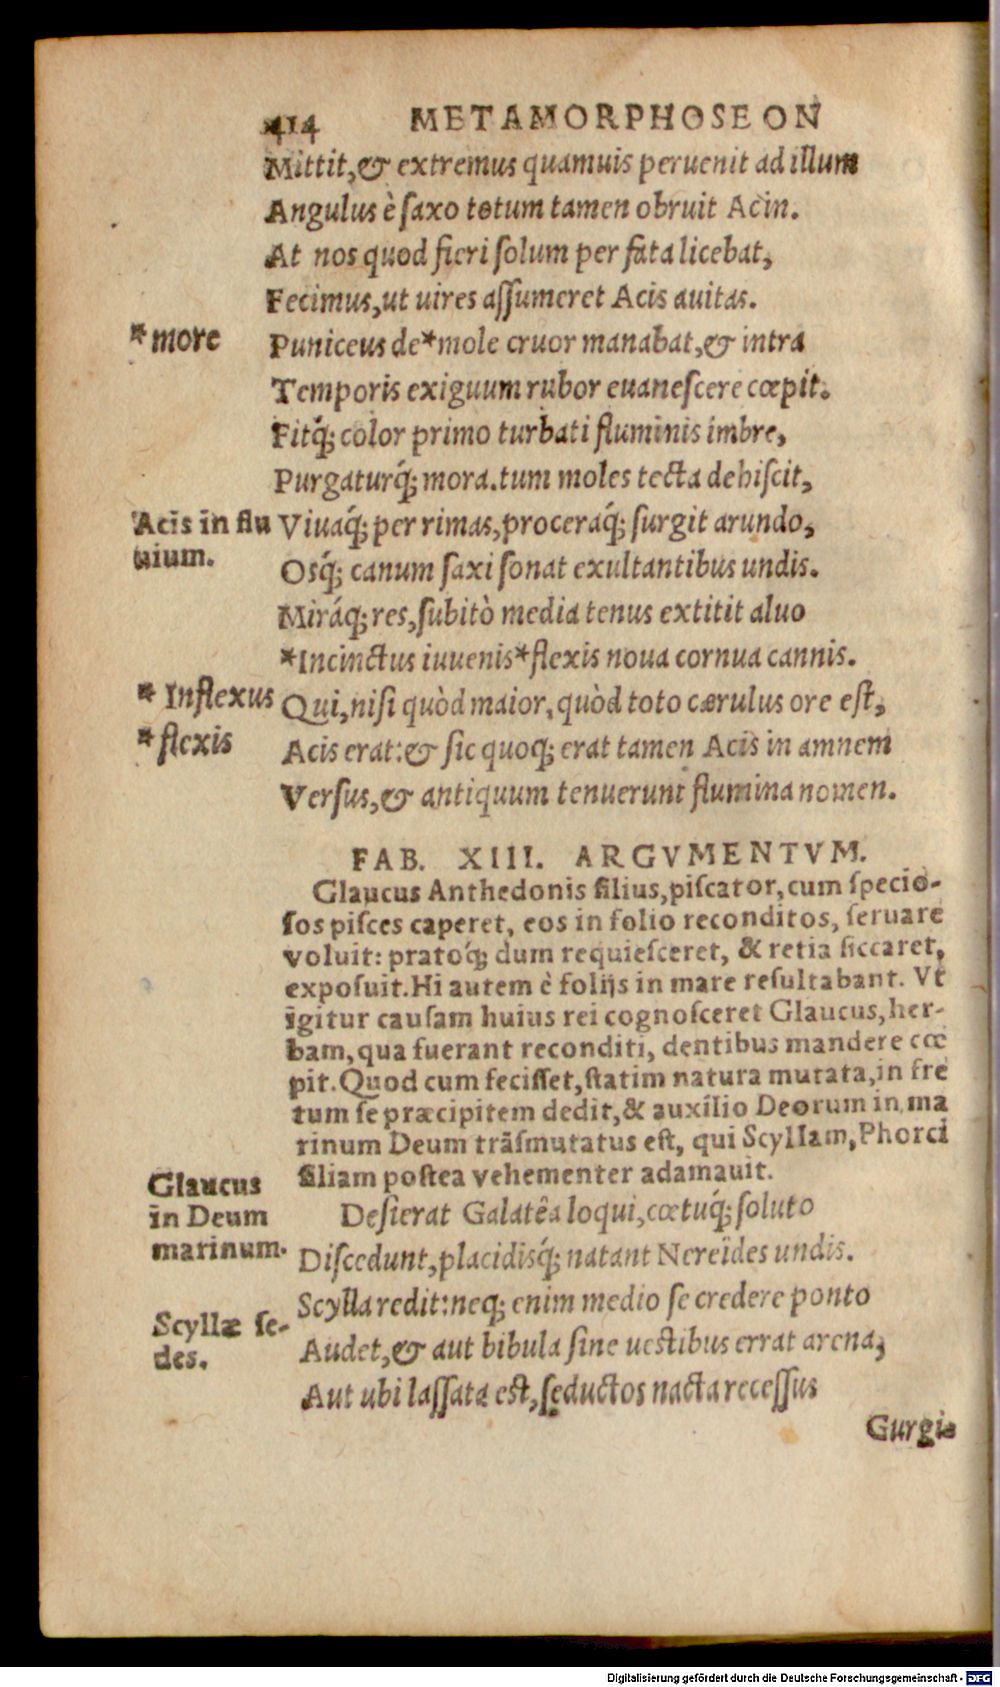 414 METAMORPHOSEON
Mittit,& extremus quamuis peruenit ad illum
Angulus è ſaxo totum tamen obruit Acin.
At nos quod fieri ſolum per fata licebat,
Fecimus,ut uires aſſumeret Acis auitas.
*more
Puniceus de*mole cruor manabat,& intra
Temporis exiguum rubor euaneſcere cœpit.
Fitq́; color primo turbati fluminis imbre,
Purgaturq́; mora.tum moles tecta dehiſcit,
Acis in flu
uium.
Viuaq́; per rimas,proceraq́; ſurgit arundo,
Osq́; canum ſaxi ſonat exultantibus undis.
Miráq; res,ſubitò media tenus extitit aluo
*Incinctus iuuenis*flexis noua cornua cannis.
* Inflexus
* flexis
Qui,niſi quòd maior,quòd toto cærulus ore eſt,
Acis erat:& ſic quoq; erat tamen Acis in amnem
Verſus,& antiquum tenuerunt flumina nomen.
FAB. XIII. ARGVMENTVM.
Glaucus Anthedonis filius,piſcator,cum ſpecio-
ſos piſces caperet, eos in folio reconditos, ſeruare
voluit: pratoq́; dum requieſceret, & retia ſiccaret,
expoſuit.Hi autem è folijs in mare reſultabant. Vt
igitur cauſam huius rei cognoſceret Glaucus,her-
bam,qua fuerant reconditi, dentibus mandere cœ
pit.Quod cum feciſſet,ſtatim natura mutata,in fre
tum ſe præcipitem dedit,& auxilio Deorum in ma
rinum Deum trãſmutatus eſt, qui Scyllam,Phorci
filiam poſtea vehementer adamauit.
Glaucus
in Deum
marinum.
Deſierat Galatêa loqui,cœtuq́; ſoluto
Diſcedunt,placidisq́; natant Nereïdes undis.
Scylla redit:neq; enim medio ſe credere ponto
Scyllæ ſe-
des.
Audet,& aut bibula ſine ueſtibus errat arena,
Aut ubi laſſata eſt,ſeductos nacta receſſus
Gurgi
Digitalisierung gefördert durch die Deutsche Forschungsgemeinschaft - DFG